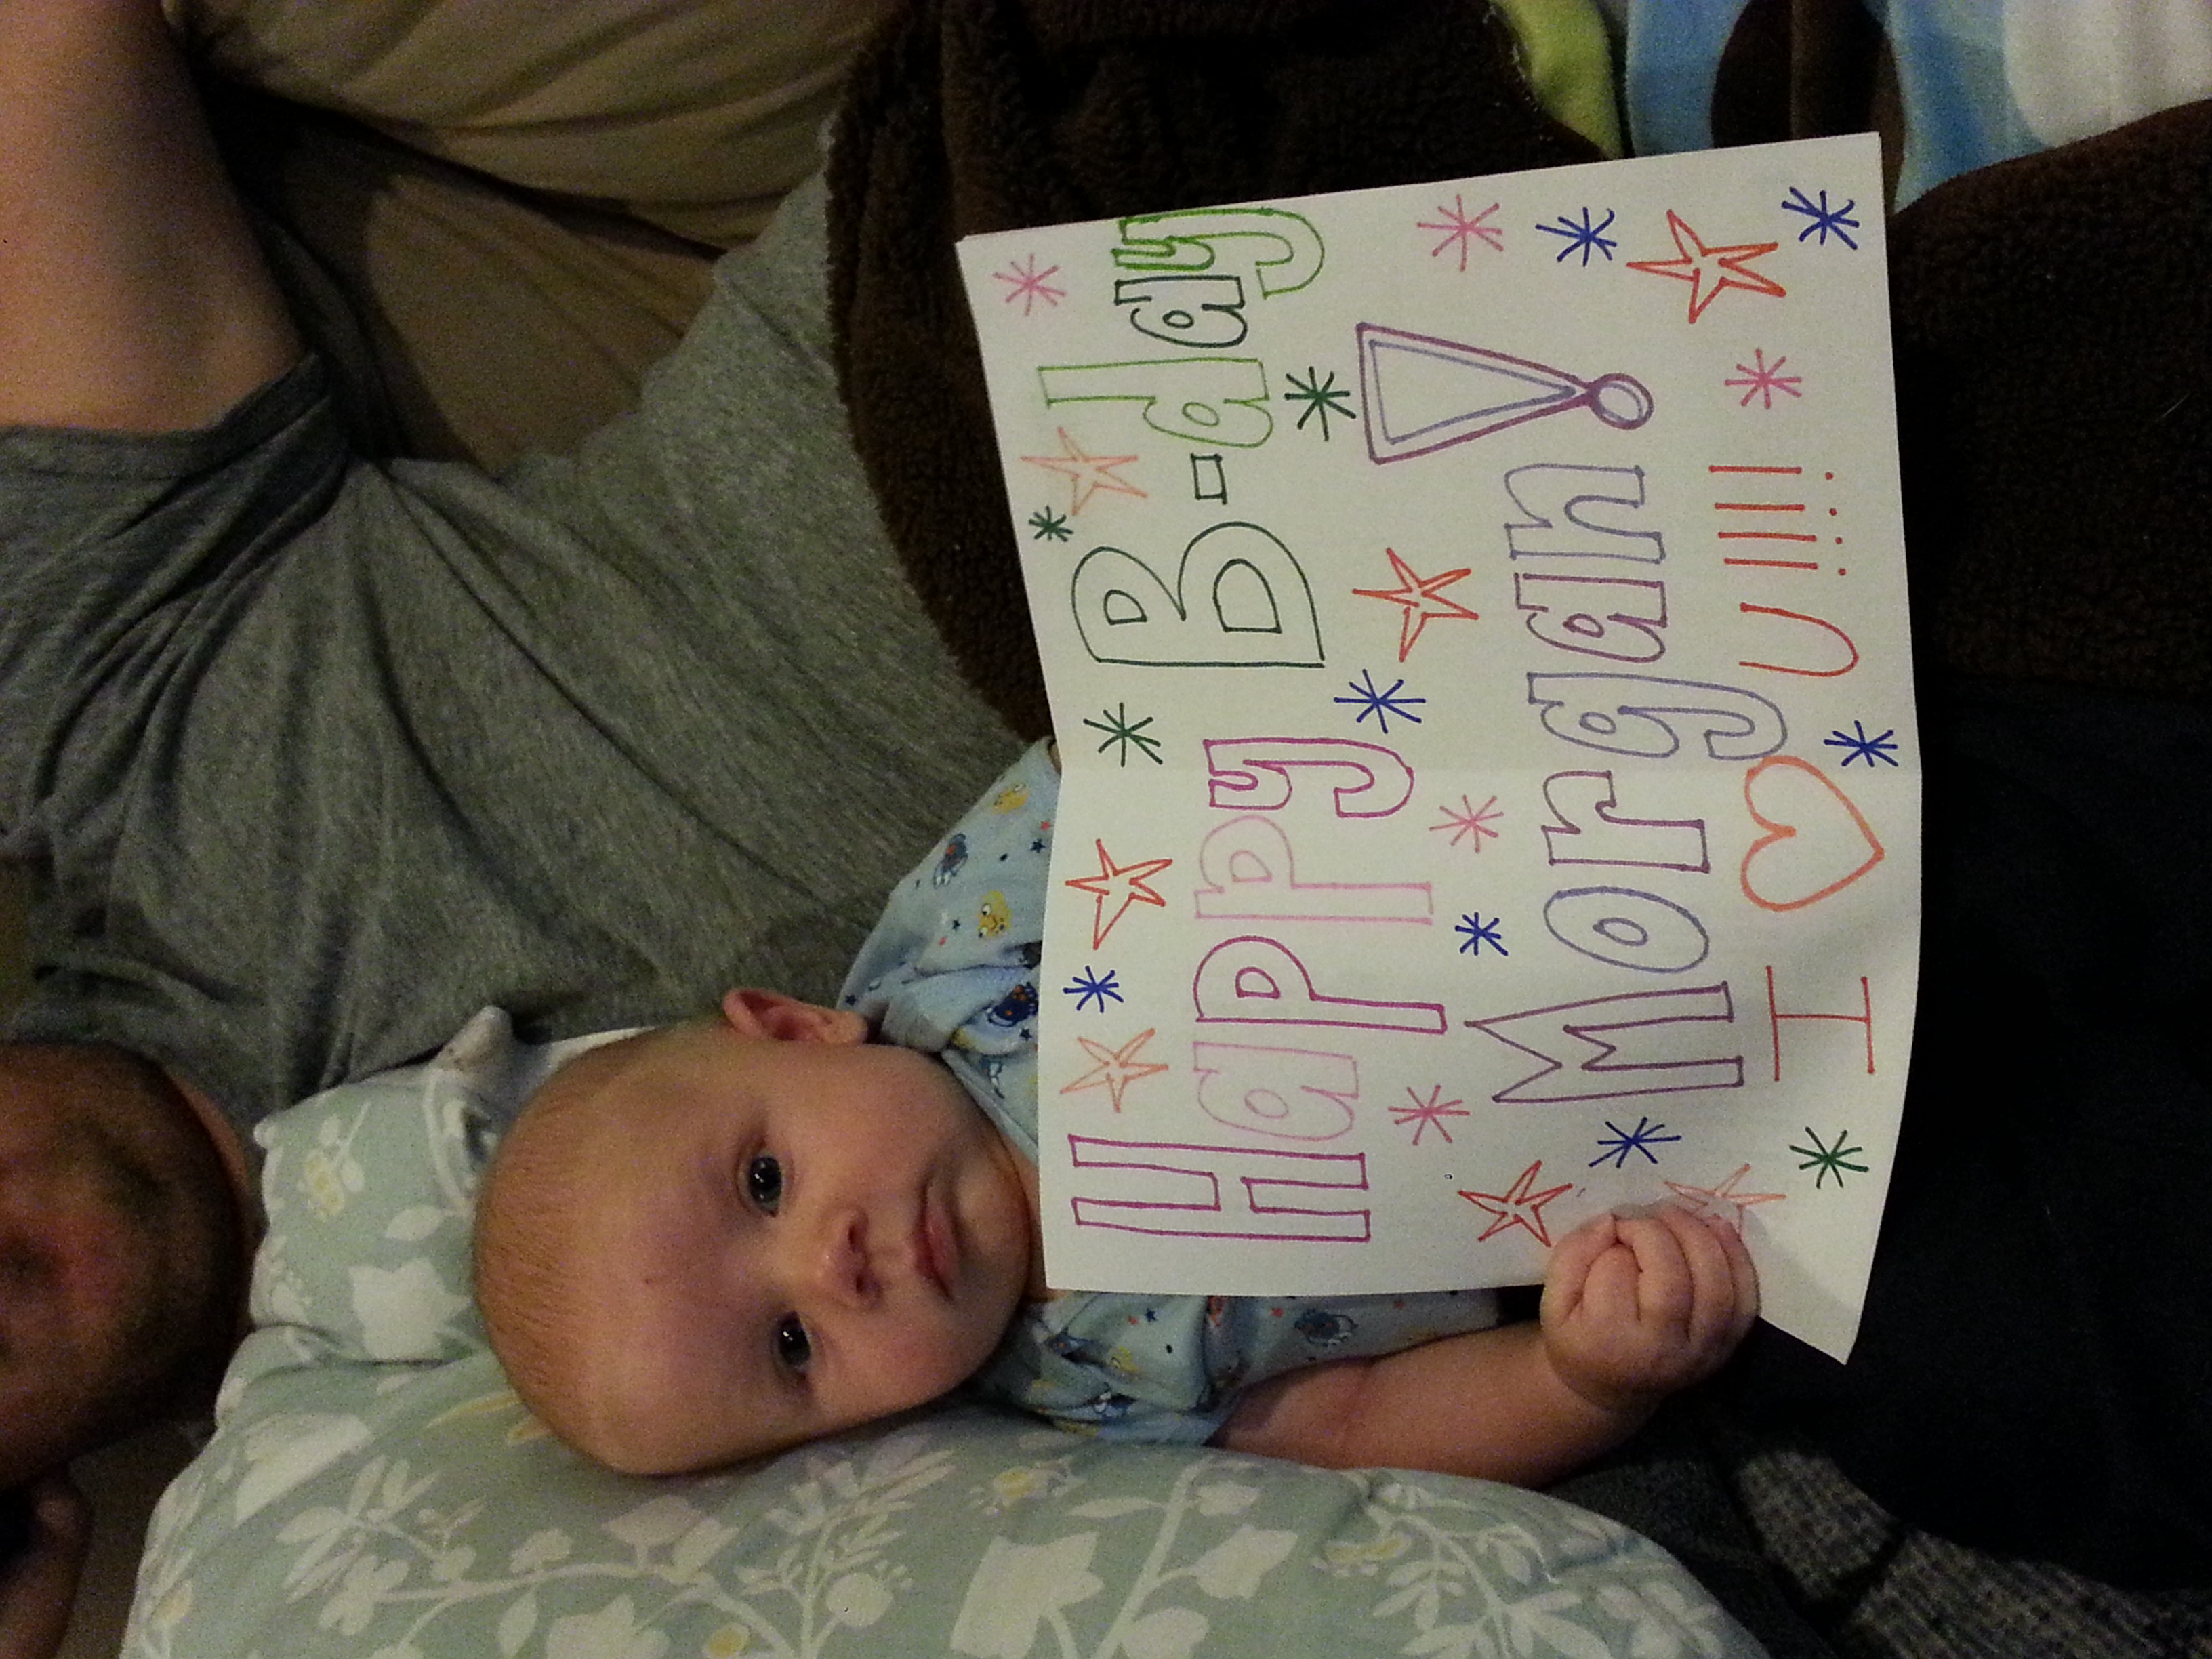 Happy B-day
Morgan!
I ♡ U!!!!